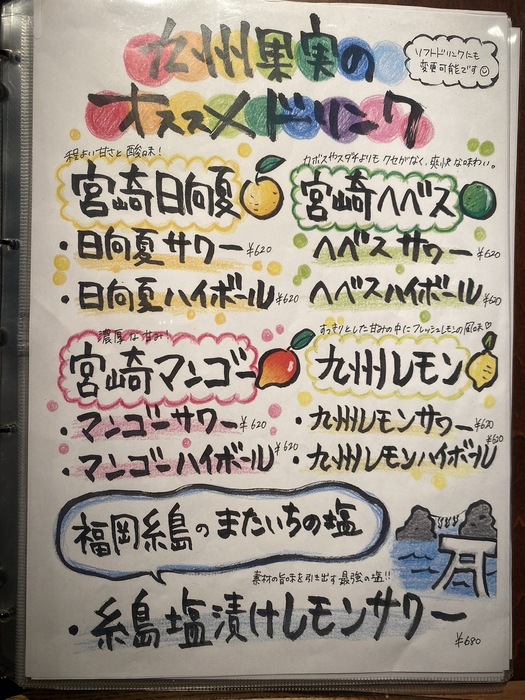 九州果実の
オススメドリンク
ソフトドリンクにも
変更可能です
程よい甘さと酸味!
宮崎日向夏
・日向夏サワー ¥620
・日向夏ハイボール ¥620
カボスやスダチよりもクセがなく、爽快な味わい。
宮崎ヘベス
ヘベスサワー ¥620
ヘベスハイボール ¥620
濃厚な甘み
宮崎マンゴー
・マンゴーサワー ¥620
・マンゴーハイボール ¥620
すっきりとした甘みの中にフレッシュレモンの風味♡
九州レモン
・九州レモンサワー ¥620
・九州レモンハイボール ¥620
福岡糸島のまたいちの塩
素材の旨味を引き出す最強の塩!!
・糸島塩漬けレモンサワー ¥680